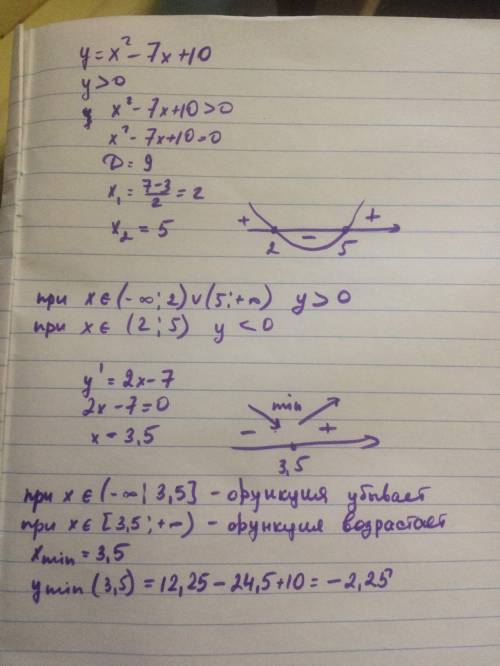 y = x² - 7x + 10
y > 0
x² - 7x + 10 > 0
x² - 7x + 10 = 0
D = 9
x₁ = (7-3)/2 = 2
x₂ = 5
+ - +
2 5
при x ∈ (-∞; 2) ∪ (5; +∞) y > 0
при x ∈ (2; 5) y < 0
y' = 2x - 7
2x - 7 = 0
x = 3,5
min
- +
3,5
при x ∈ (-∞; 3,5] - функция убывает
при x ∈ [3,5; +∞) - функция возрастает
xmin = 3,5
ymin (3,5) = 12,25 - 24,5 + 10 = -2,25